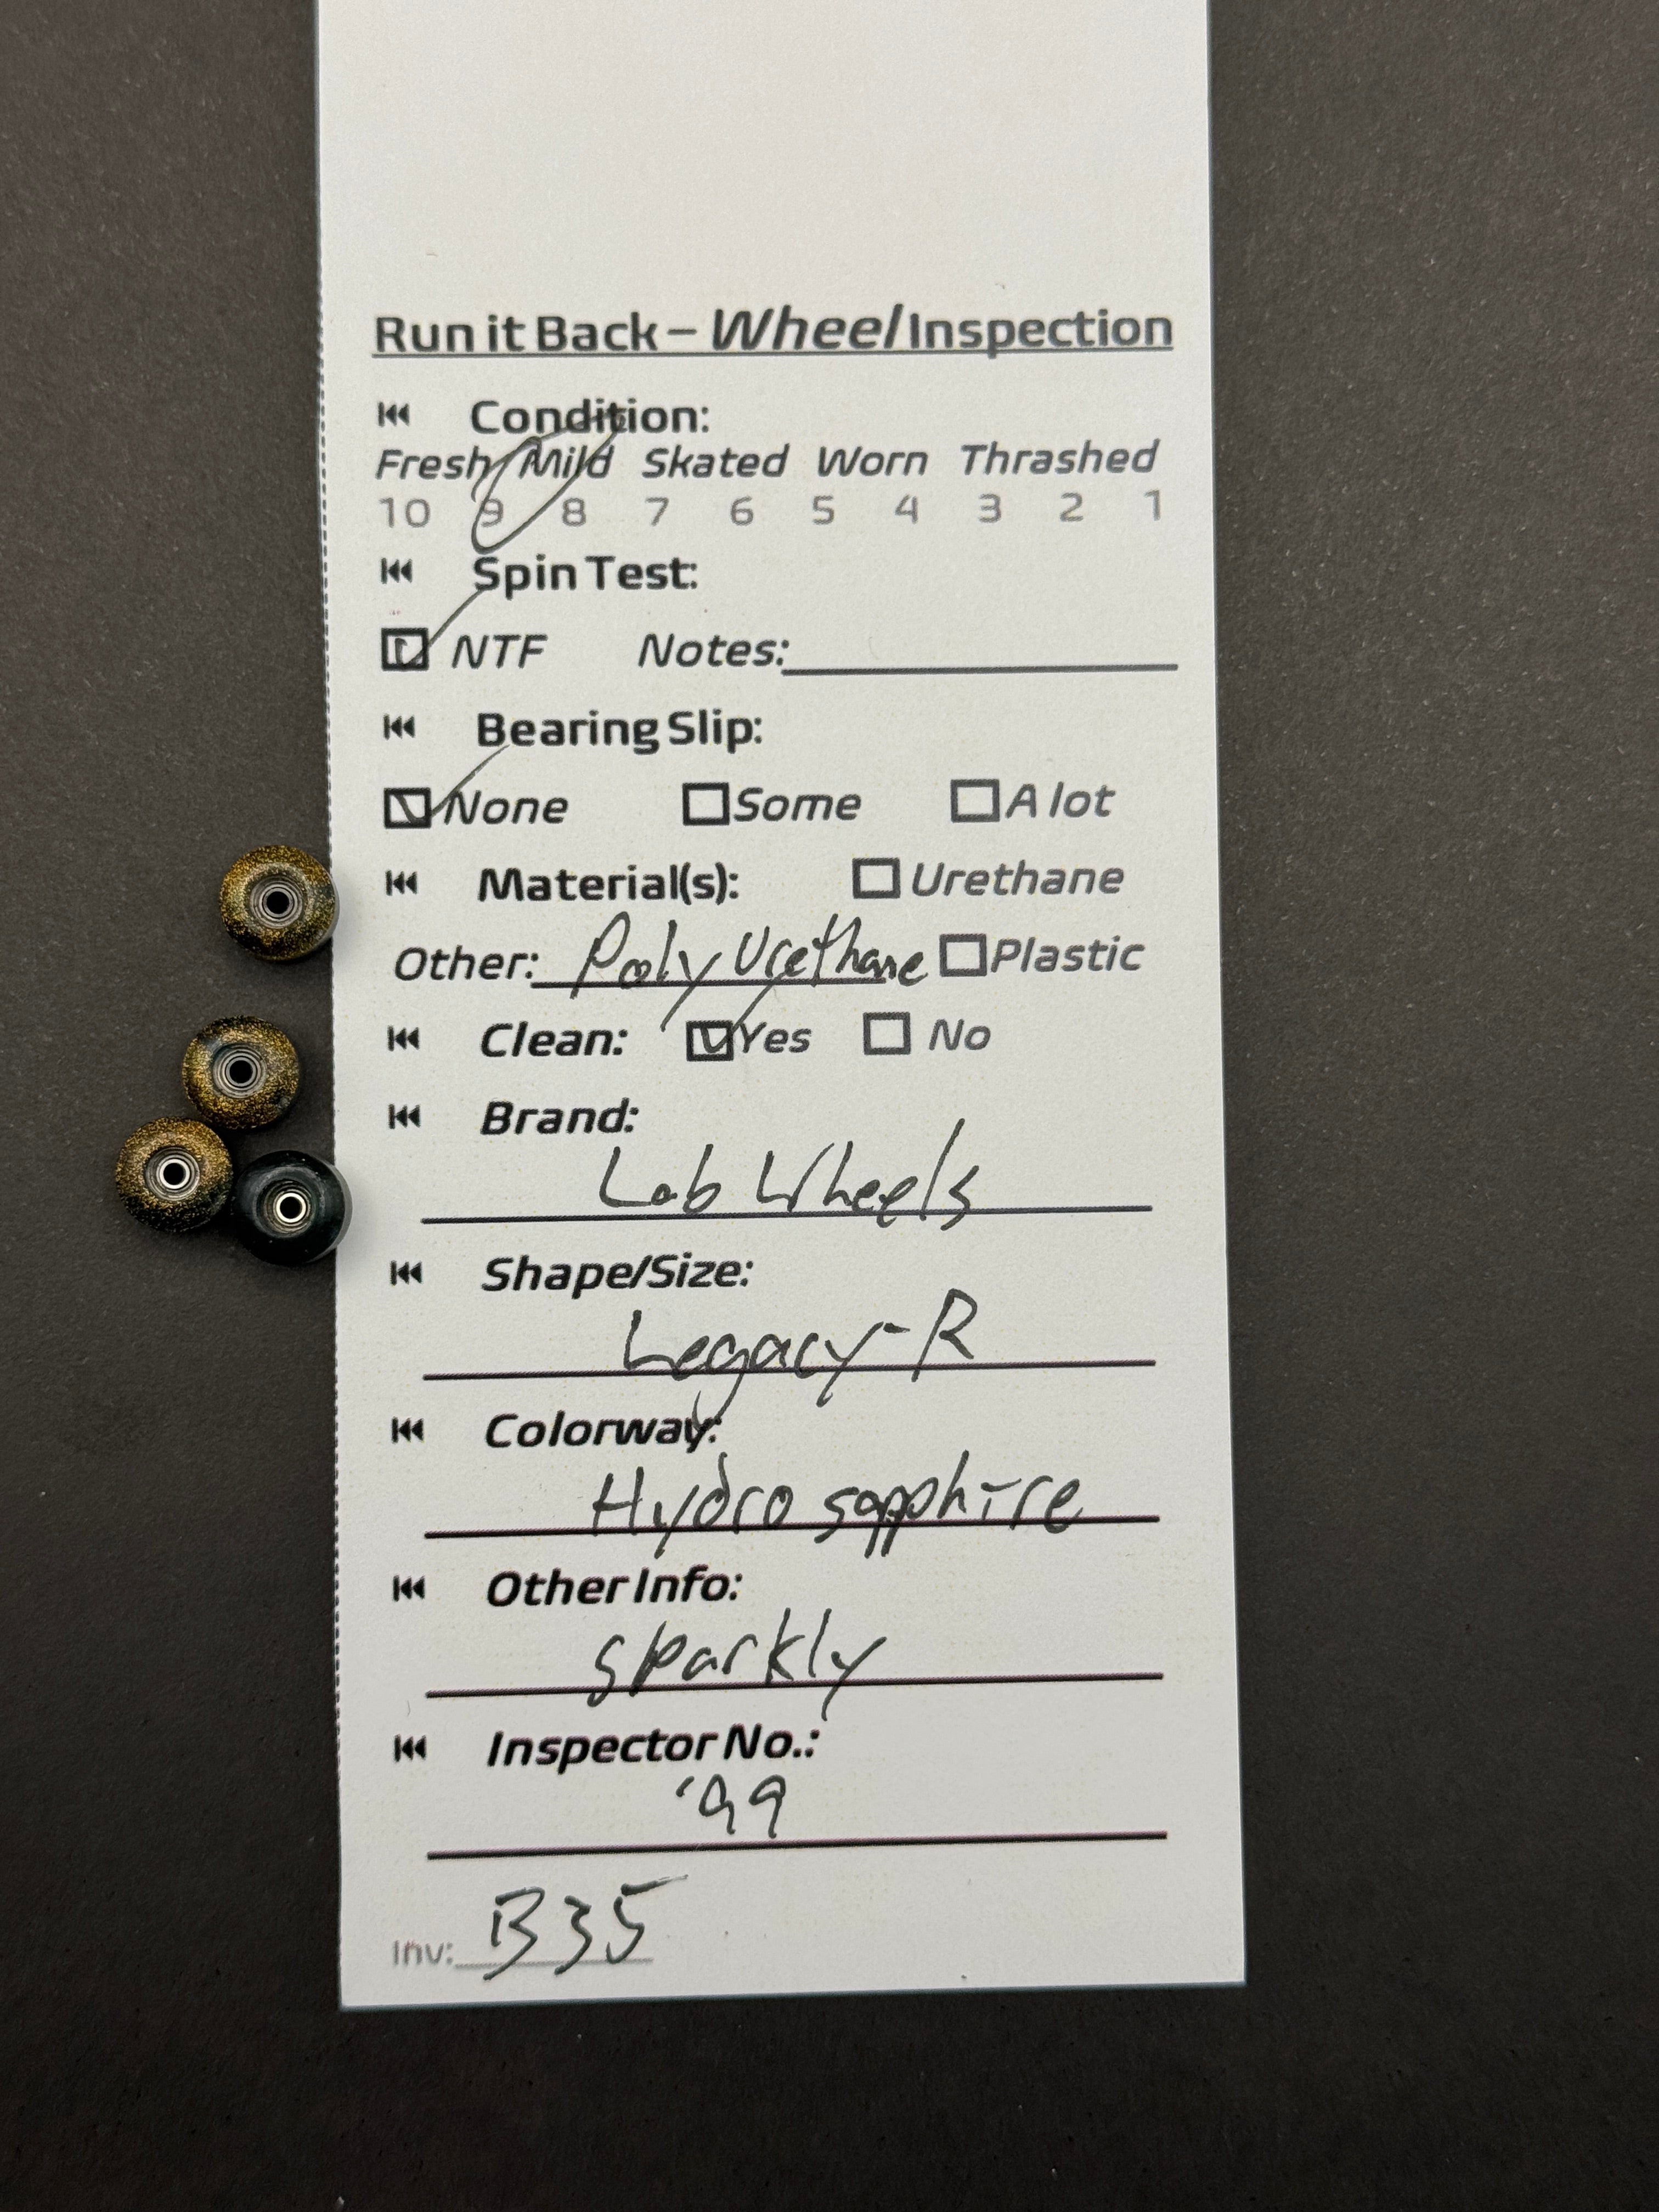 Run it Back – Wheel Inspection
Condition:
Fresh/Mild Skated Worn Thrashed
10 9 8 7 6 5 4 3 2 1
Spin Test:
NTF Notes:
Bearing Slip:
None Some A lot
Material(s): Urethane
Other: Poly Urethane Plastic
Clean: Yes No
Brand:
Lab Wheels
Shape/Size:
Legacy-R
Colorway:
Hydro sapphire
Other Info:
sparkly
Inspector No.:
'99
Inv: B35